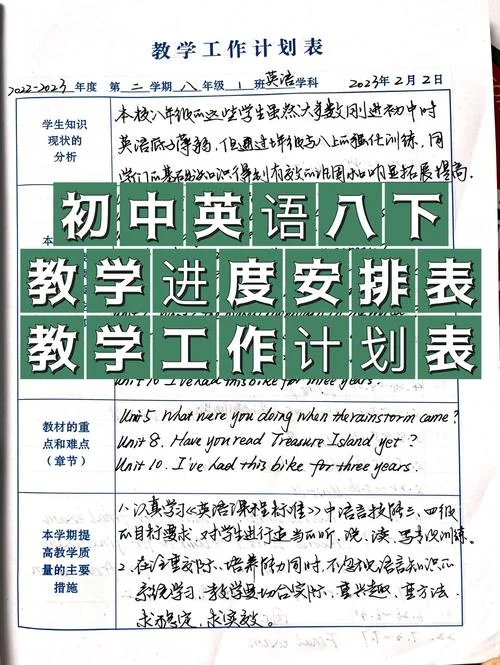 教学工作计划表
2022-2023 年度 第 二 学期 八 年级 1 班 英语 学科 2023年2月2日
学生知识
现状的
分析
本校八年级的这些学生虽然大多数刚进初中时
英语底子薄弱，但通过七年级与八上的强化训练，同
学们的基础知识得到有效的巩固和明显拓展提高.
初中英语八下
教学进度安排表
教学工作计划表
Unit 10 I've had this bike for three years.
教材的重
点和难点
（章节）
Unit 5 What were you doing when the rainstorm came?
Unit 8. Have you read Treasure Island yet?
Unit 10. I've had this bike for three years.
本学期提
高教学质
量的主要
措施
1. 认真学习《英语课程标准》中语言技能三、四级
的目标要求，对学生进行适当的听、说、读、写等级训练。
2. 在注重交际、培养能力同时，不忽视语言知识的
系统学习，教学要切合实际，重兴趣，重方法，
求稳定，求实效。